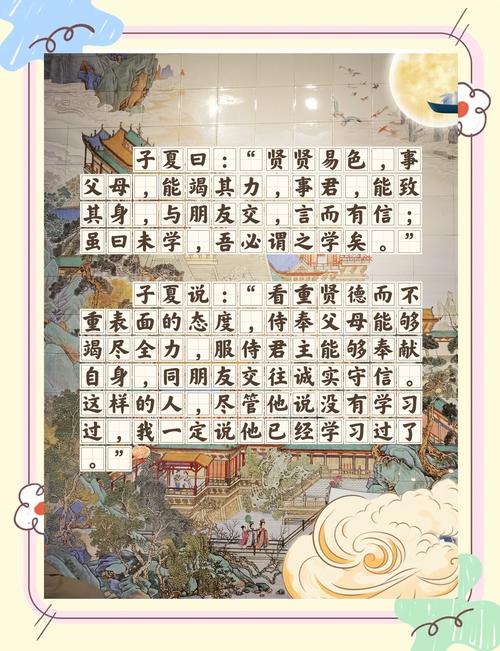 子夏曰：“贤贤易色，事
父母，能竭其力，事君，能致
其身，与朋友交，言而有信；
虽曰未学，吾必谓之学矣。”
子夏说：“看重贤德而不
重表面的态度，侍奉父母能够
竭尽全力，服侍君主能够奉献
自身，同朋友交往诚实守信。
这样的人，尽管他说没有学习
过，我一定说他已经学习过了
。”